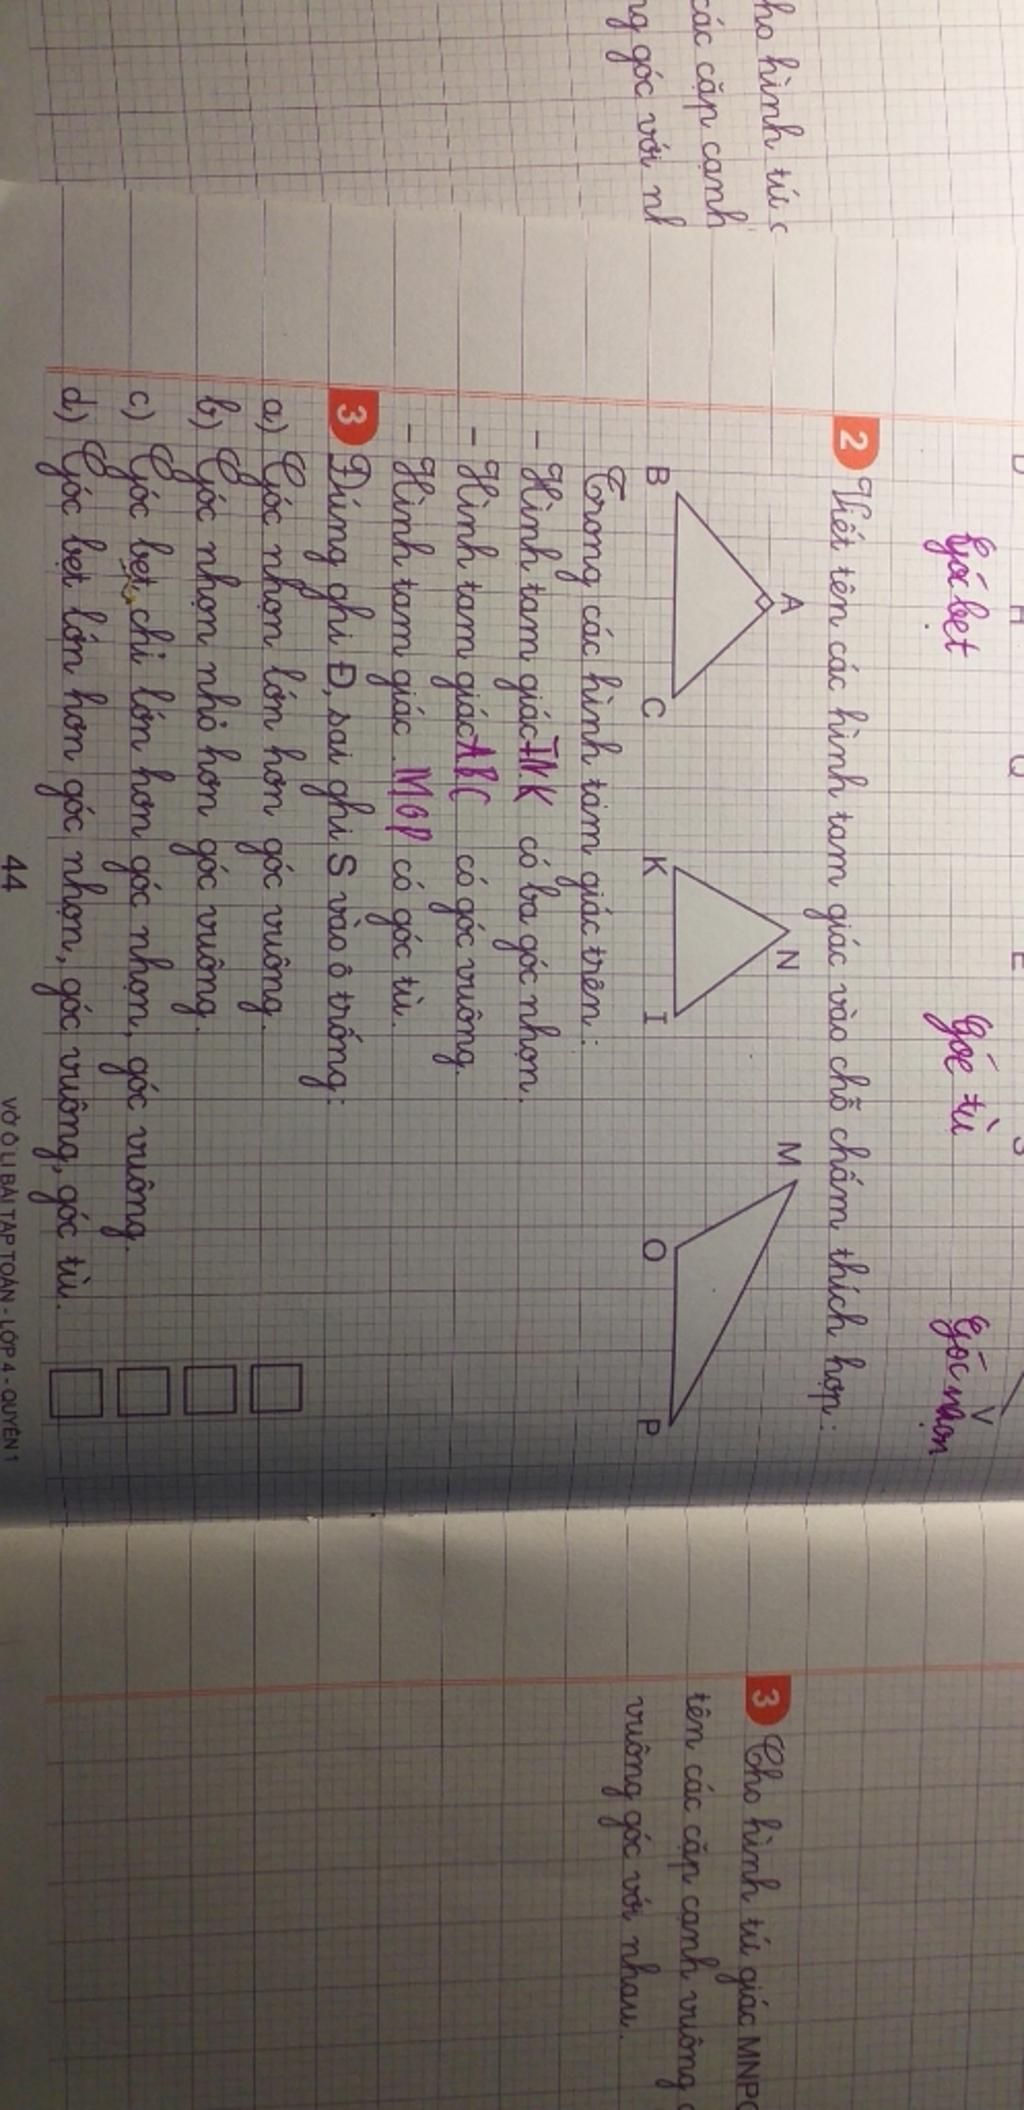 ho hình tứ
các cặp cạnh
góc với
Góc bẹt Góc tù Góc nhọn
V
2 Viết tên các hình tam giác vào chỗ chấm thích hợp:
A N M
B C K I O P
Trong các hình tam giác trên:
- Hình tam giác INK có ba góc nhọn.
- Hình tam giác ABC có góc vuông.
- Hình tam giác MOP có góc tù.
3 Đúng ghi Đ, sai ghi S vào ô trống:
a) Góc nhọn lớn hơn góc vuông.
b) Góc nhọn nhỏ hơn góc vuông.
c) Góc bẹt chỉ lớn hơn góc nhọn, góc vuông.
d) Góc bẹt lớn hơn góc nhọn, góc vuông, góc tù.
44 VỞ Ô LI BÀI TẬP TOÁN - LỚP 4 - QUYỂN 1
3 Cho hình tứ giác MNPQ
tên các cặp cạnh vuông
vuông góc với nhau.